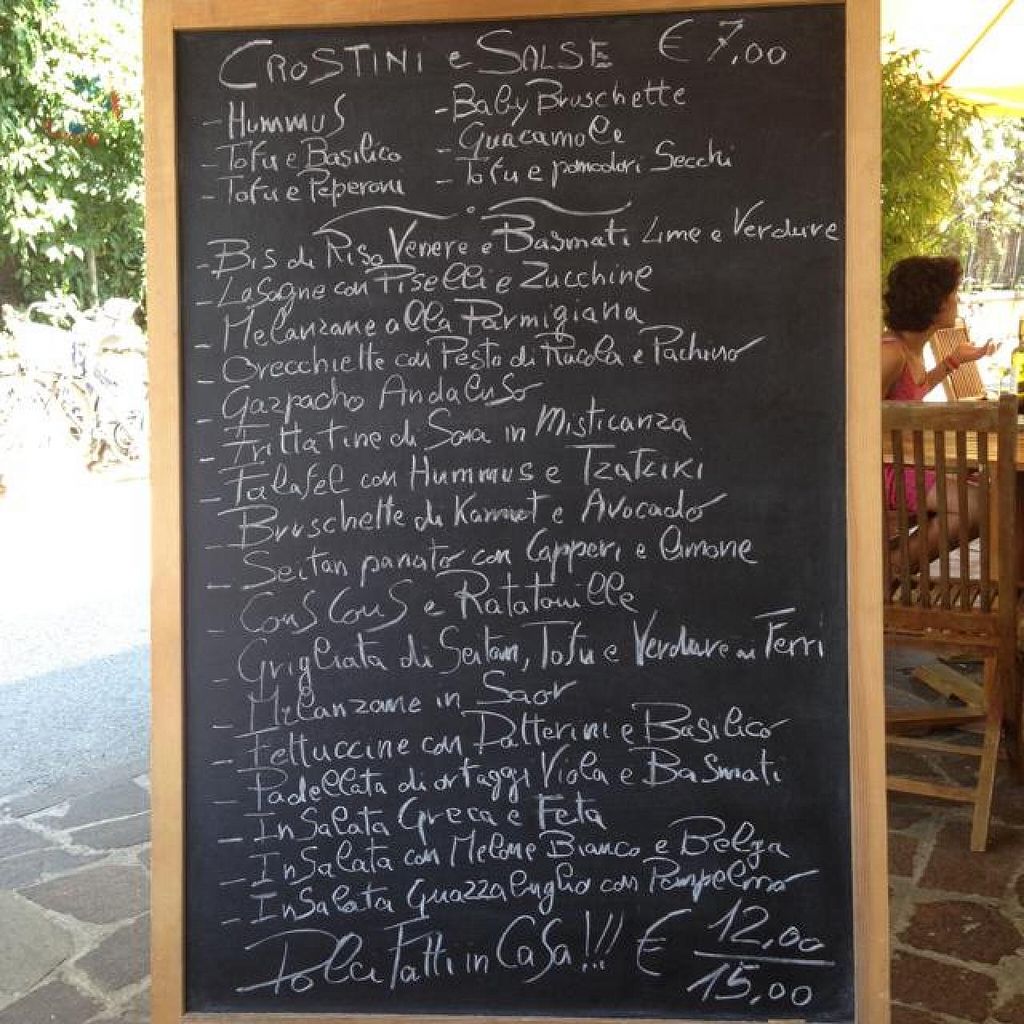 CROSTINI e SALSE € 7,00
- HUMMUS - Baby Bruschette
- Tofu e Basilico - Guacamole
- Tofu e Peperoni - Tofu e pomodori Secchi
- Bis di Riso Venere e Basmati Lime e Verdure
- Lasagne con Piselli e Zucchine
- Melanzane alla Parmigiana
- Orecchiette con Pesto di Rucola e Pachino
- Gazpacho Andaluso
- Frittatine di Soia in Misticanza
- Falafel con Hummus e Tzatziki
- Bruschette di Kamut e Avocado
- Seitan panato con Capperi e Limone
- Cous Cous e Ratatouille
- Grigliata di Seitan, Tofu e Verdure ai Ferri
- Melanzane in Saor
- Fettuccine con Datterini e Basilico
- Padellata di ortaggi Viola e Basmati
- Insalata Greca e Feta
- Insalata con Melone Bianco e Belga
- Insalata Guazzabuglio con Pompelmo
Dolci Fatti in Casa!!! € 12,00
15,00